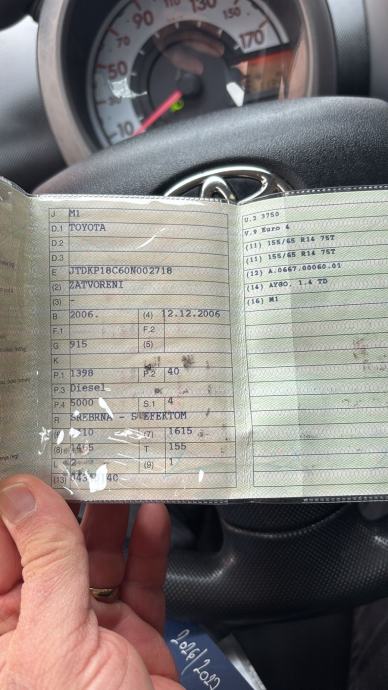 10
30
50
70
90
110
130
150
170
J M1
D.1 TOYOTA
D.2
D.3
E JTDKP18C60N002718
(2) ZATVORENI
(3) -
B 2006. (4) 12.12.2006
F.1 F.2
G 915 (5)
K
P.1 1398 P.2 40
P.3 Diesel
P.4 5000 S.1 4
R SREBRNA - S EFEKTOM
(7) 1615
(8) T 155
L 2 (9) 1
(13)
U.2 3750
V.9 Euro 4
(11) 155/65 R14 75T
(11) 155/65 R14 75T
(12) A.0667.00060.01
(14) AYGO, 1.4 TD
(16) M1
2026/2027